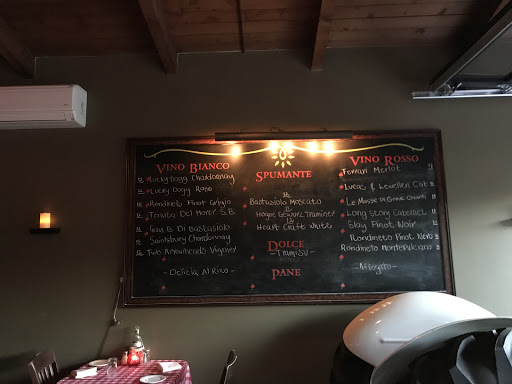 VINO BIANCO
Lucky Dogg Chardonnay
Lucky Dogg Rose
Rondineto Pinot Grigio
Tenuta Del Morer S.B.
Gavi B Di Bastasiolo
Saintsbury Chardonnay
Two Arrowheads Viognier
- Delicia Al Rico -
SPUMANTE
Bastasiolo Moscato
Hogue Gewurz Traminer
Heart Craft White
DOLCE
- Tiramisu -
PANE
VINO ROSSO
Ferrari Merlot
Lucas & Lewellen Cab
Le Masse Di Greve Chianti
Long Story Cabernet
Slay Pinot Noir
Rondineto Pinot Nero
Rondineto Montepulciano
- Affogato -